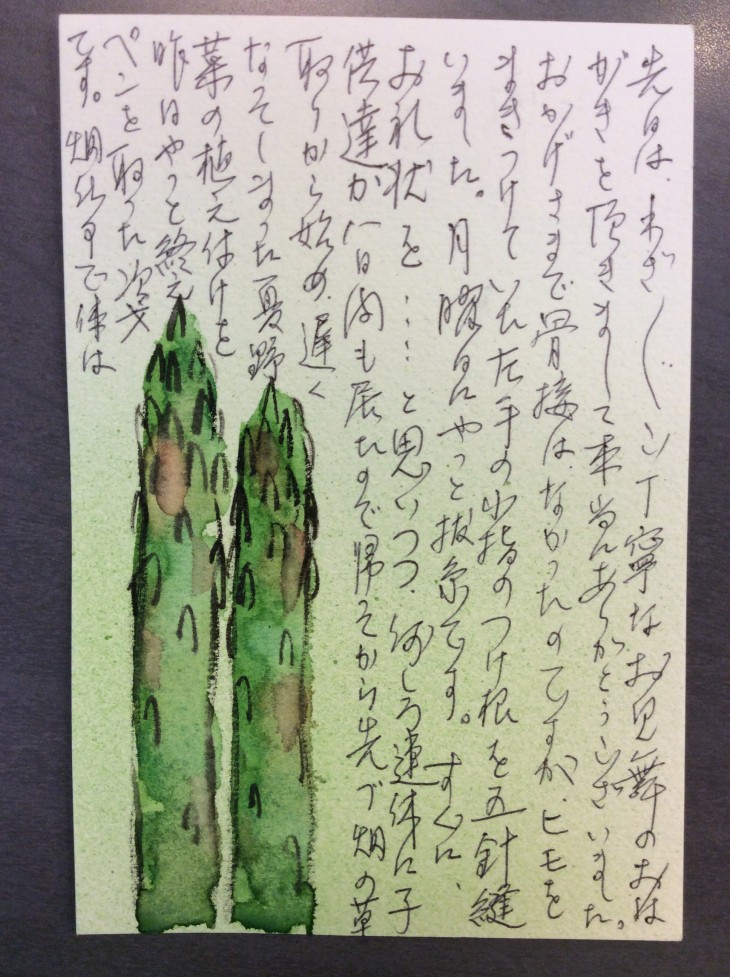 先日は、わざ〳〵ご丁寧なお見舞のおは
がきを頂きまして本当にありがとうございました。
おかげさまで骨接は、なかったのですが、ヒモを
まきつけていた左手の小指のつけ根を五針縫
いました。月曜日にやっと抜糸です。すぐに、
お礼状を……と思いつつ、何しろ連休に子
供達が八日間も居たので帰ってから先づ畑の草
取りから始め、遅く
なってしまった夏野
菜の植え付けを
昨日やっと終え
ペンを取った次第
です。畑仕事で体は